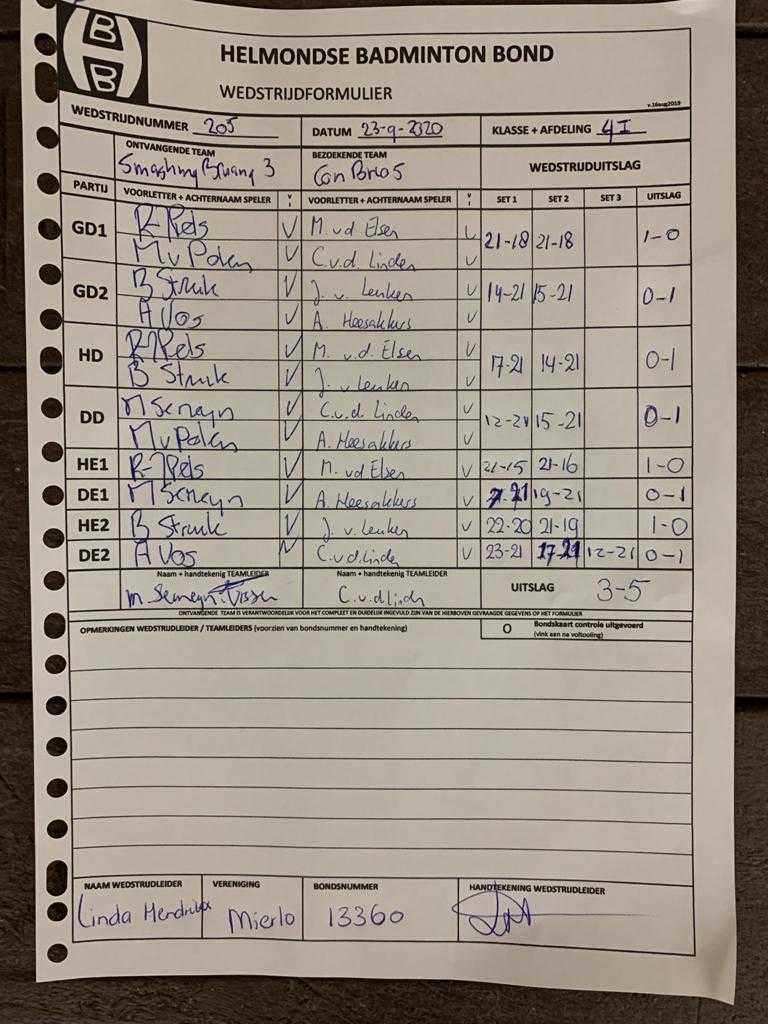 B
B
HELMONDSE BADMINTON BOND
WEDSTRIJDFORMULIER
v.16aug2019
WEDSTRIJDNUMMER 205 DATUM 23-9-2020 KLASSE + AFDELING 4I
ONTVANGENDE TEAM BEZOEKENDE TEAM WEDSTRIJDUITSLAG
Smashing 3 Con Brio 5
PARTIJ VOORLETTER + ACHTERNAAM SPELER V/I VOORLETTER + ACHTERNAAM SPELER V/I SET 1 SET 2 SET 3 UITSLAG
GD1 Pels V M. vd Elsen V 21-18 21-18 1-0
M v Polen V C.v.d. Linden V
GD2 B Struik V J. v. Leuken V 14-21 15-21 0-1
A Vos V A. Heesakkers V
HD Pels V M. v.d. Elsen V 17-21 14-21 0-1
B Struik V J. v Leuken V
DD M Semeyn V C.v.d. Linden V 12-21 15-21 0-1
M v Polen V A. Heesakkers V
HE1 Pels V M. vd Elsen V 21-15 21-16 1-0
DE1 M Semeyn V A. Heesakkers V 7-21 19-21 0-1
HE2 B Struik V J. v. Leuken V 22-20 21-19 1-0
DE2 A Vos V C.v.d.Linden V 23-21 17-21 12-21 0-1
Naam + handtekenig TEAMLEIDER Naam + handtekenig TEAMLEIDER UITSLAG 3-5
m Semeyn-Vissen C.v.d.Linden
ONTVANGENDE TEAM IS VERANTWOORDELIJK VOOR HET COMPLEET EN DUIDELIJK INGEVULD ZIJN VAN DE HIERBOVEN GEVRAAGDE GEGEVENS OP HET FORMULIER
OPMERKINGEN WEDSTRIJDLEIDER / TEAMLEIDERS (voorzien van bondsnummer en handtekening) O Bondskaart controle uitgevoerd
(vink aan na voltooiing)
NAAM WEDSTRIJDLEIDER VERENIGING BONDSNUMMER HANDTEKENING WEDSTRIJDLEIDER
Linda Hendrikx Mierlo 13360